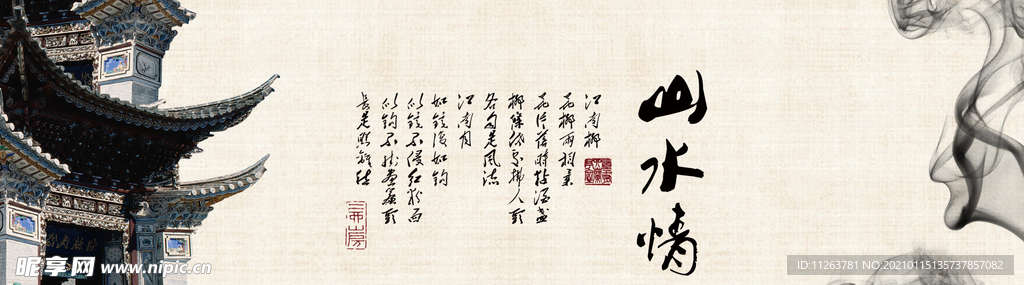 山水情
江南柳
花柳两相柔
花片落时粘酒盏
柳条低处拂人头
各自是风流
江南月
如镜复如钩
似镜不侵红粉面
似钩不挂画帘头
长是照离愁
昵享网 www.nipic.cn
ID:11263781 NO:20210115135737857082